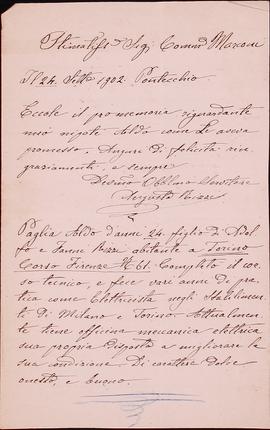 Stimatiss. Sig. Comm. Marconi
Il 24. Sett. 1902. Pontecchio.
Eccole il promemoria riguardante
mio nipote Aldo come Le aveva
promesso. Augure di felicità rin-
graziamenti, e sempre
Devmo Obblmo Servitore
Augusto Rizzi
Paglia Aldo d'anni 24. figlio di Adol-
fo e Fanny Rizzi abitante a Torino
Corso Firenze N. 61. Completò il cor-
so tecnico, e fece vari anni di pra-
tica come Elettricista negli Stabilimen-
ti di Milano e Torino. Attualmen-
te tiene officina meccanica elettrica
sua propria disposto a migliorare la
sua condizione. Di carattere dolce
onesto, e buono.